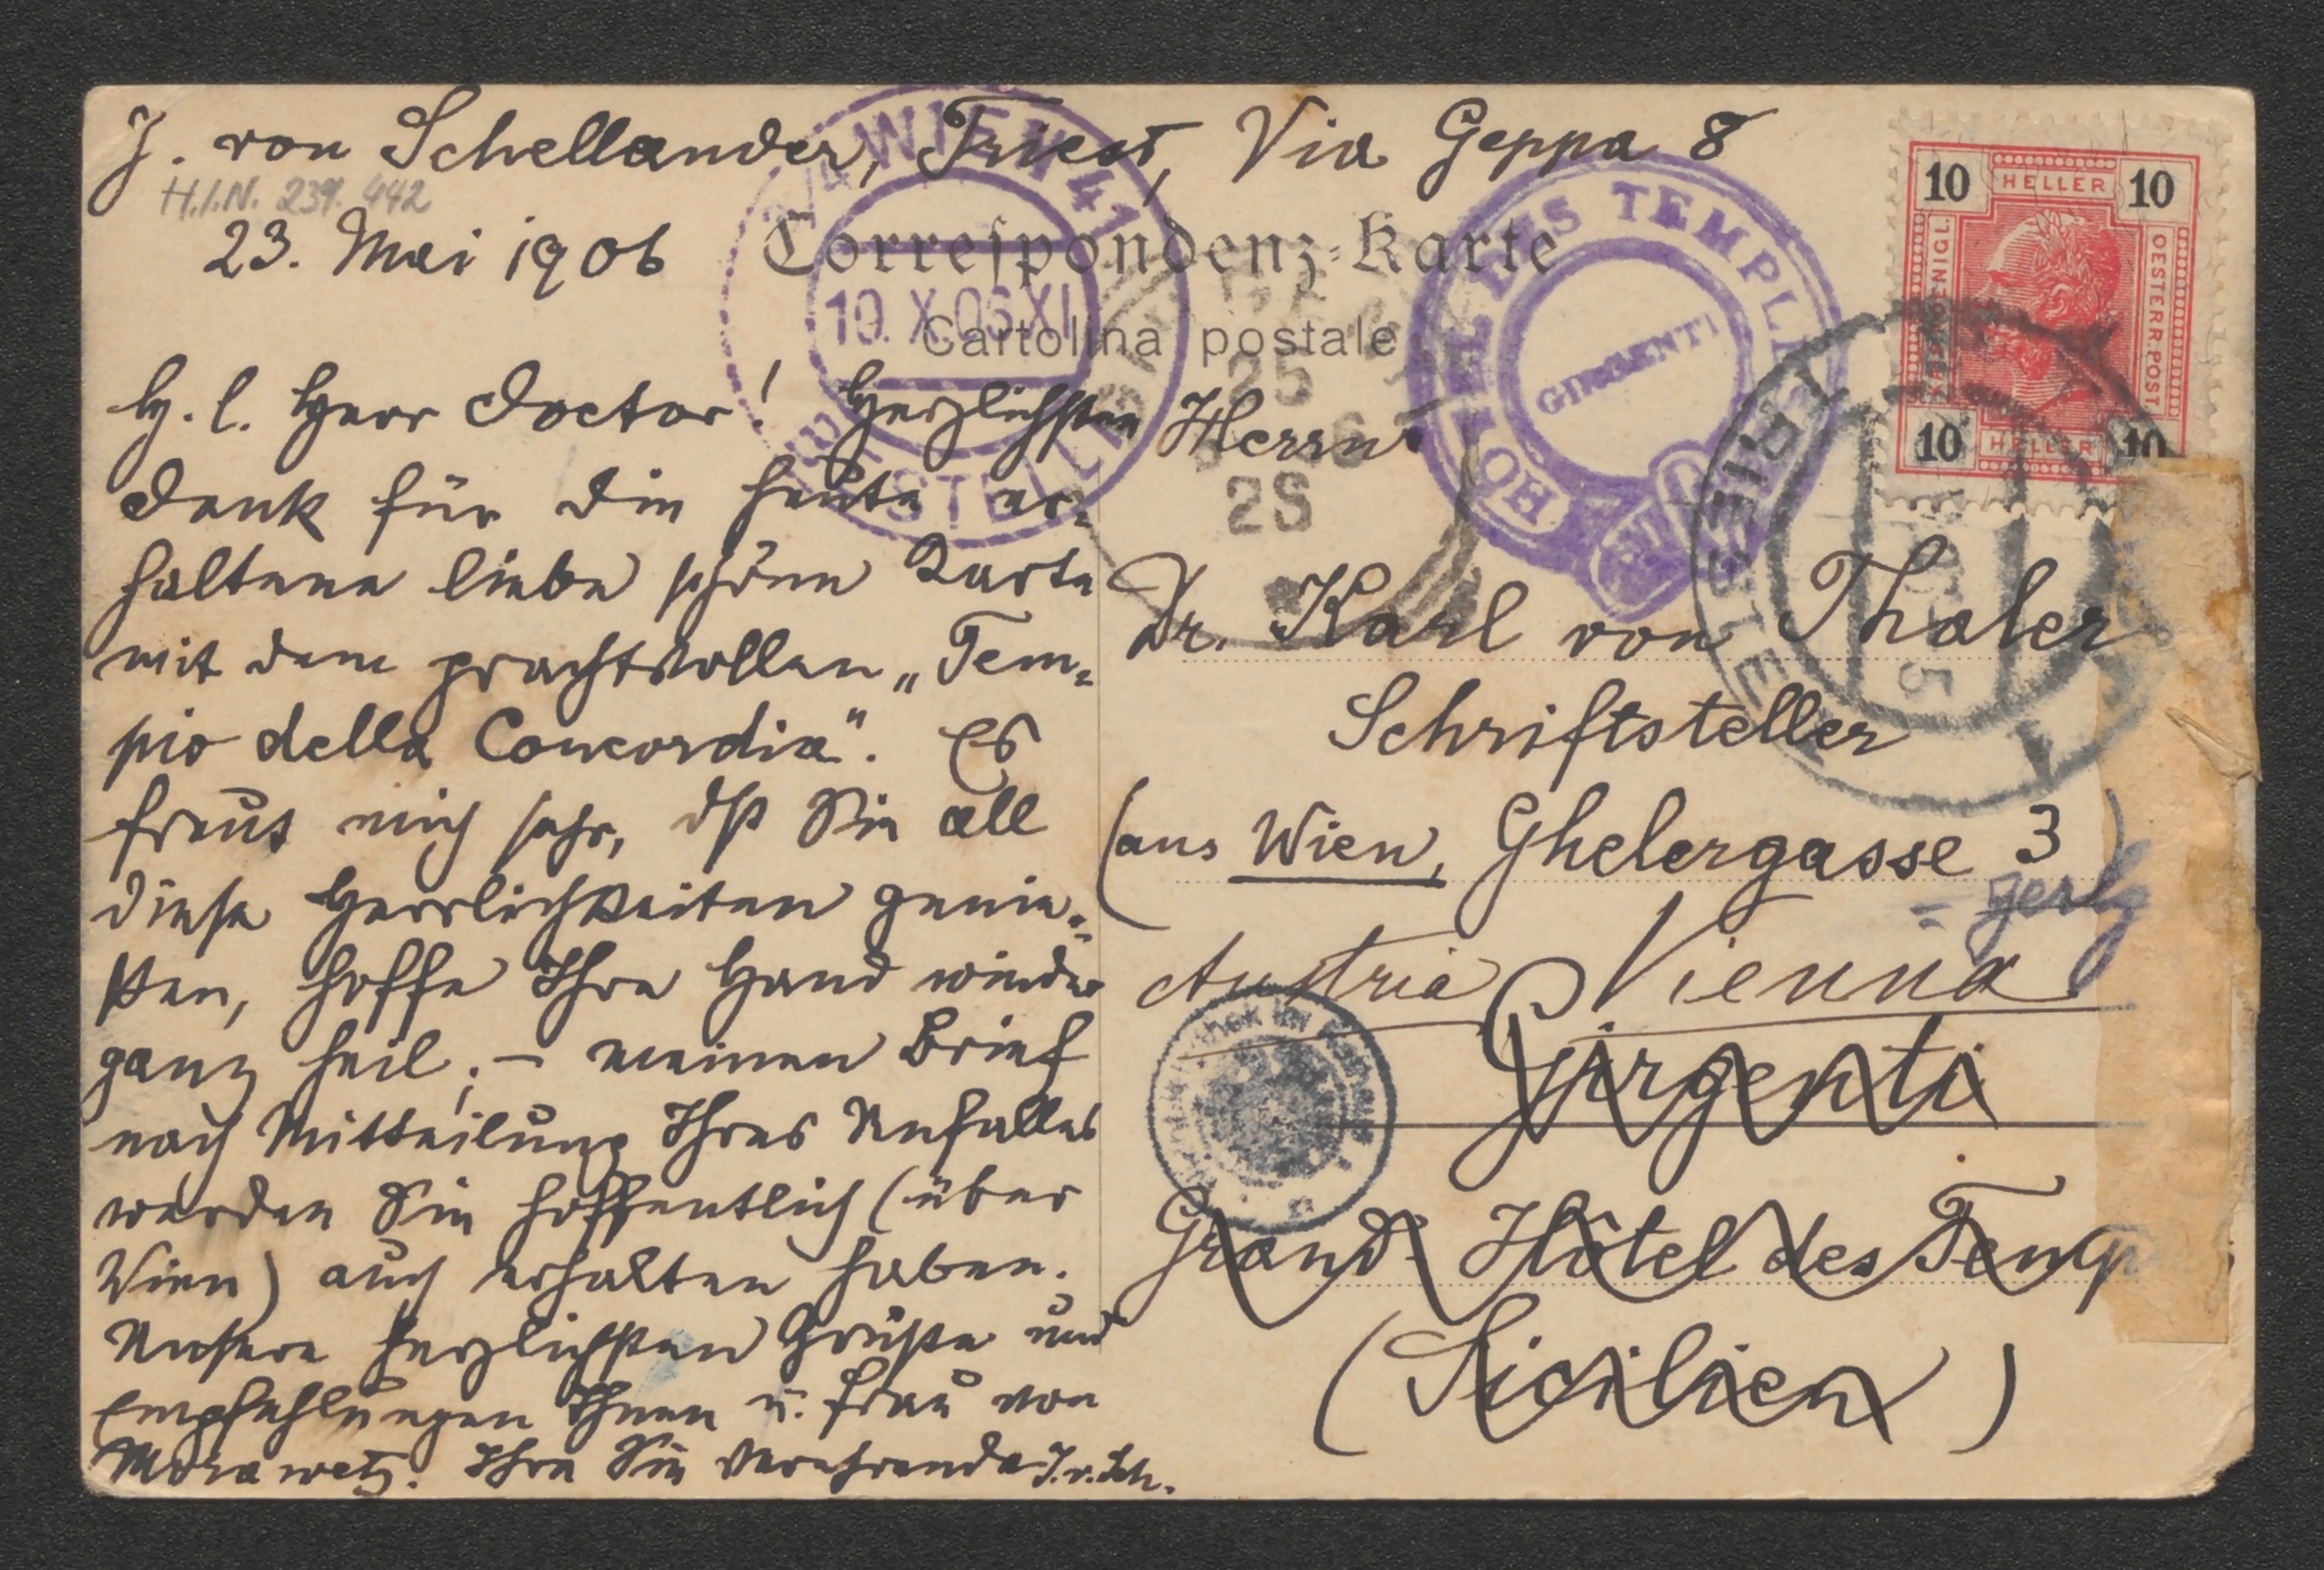 J. von Schellander, Triest, Via Geppa 8
H.I.N. 239.442
23. Mai 1906
Correspondenz-Karte
Cartolina postale
H. l. Herr Doctor! Herzlichsten
Dank für die heute er-
haltene liebe schöne Karte
mit dem prachtvollen „Tem-
pio della Concordia". Es
freut mich sehr, dß Sie all
diese Herrlichkeiten genie-
ßen, hoffe Ihre Hand wieder
ganz heil; – meinen Brief
nach Mitteilung Ihres Unfalles
werden Sie hoffentlich (über
Wien) auch erhalten haben.
Unsere herzlichsten Grüße und
Empfehlungen Ihnen u. Frau von
Morawetz. Ihre Sie verehrende J.v.Sch.
Herrn
Dr. Karl von Thaler
Schriftsteller
(aus Wien, Ghelergasse 3)
Austria Vienna
Girgenti
Grand Hôtel des Temp
(Sicilien)
10 HELLER 10
KAISERKOENIGL.
OESTERR. POST
10 HELLER 10
WIEN 41
10. X. 06 XI
BESTELLT
HOTEL DES TEMPLES
GIRGENTI
25
2S
TRIEST
TRIESTE
5